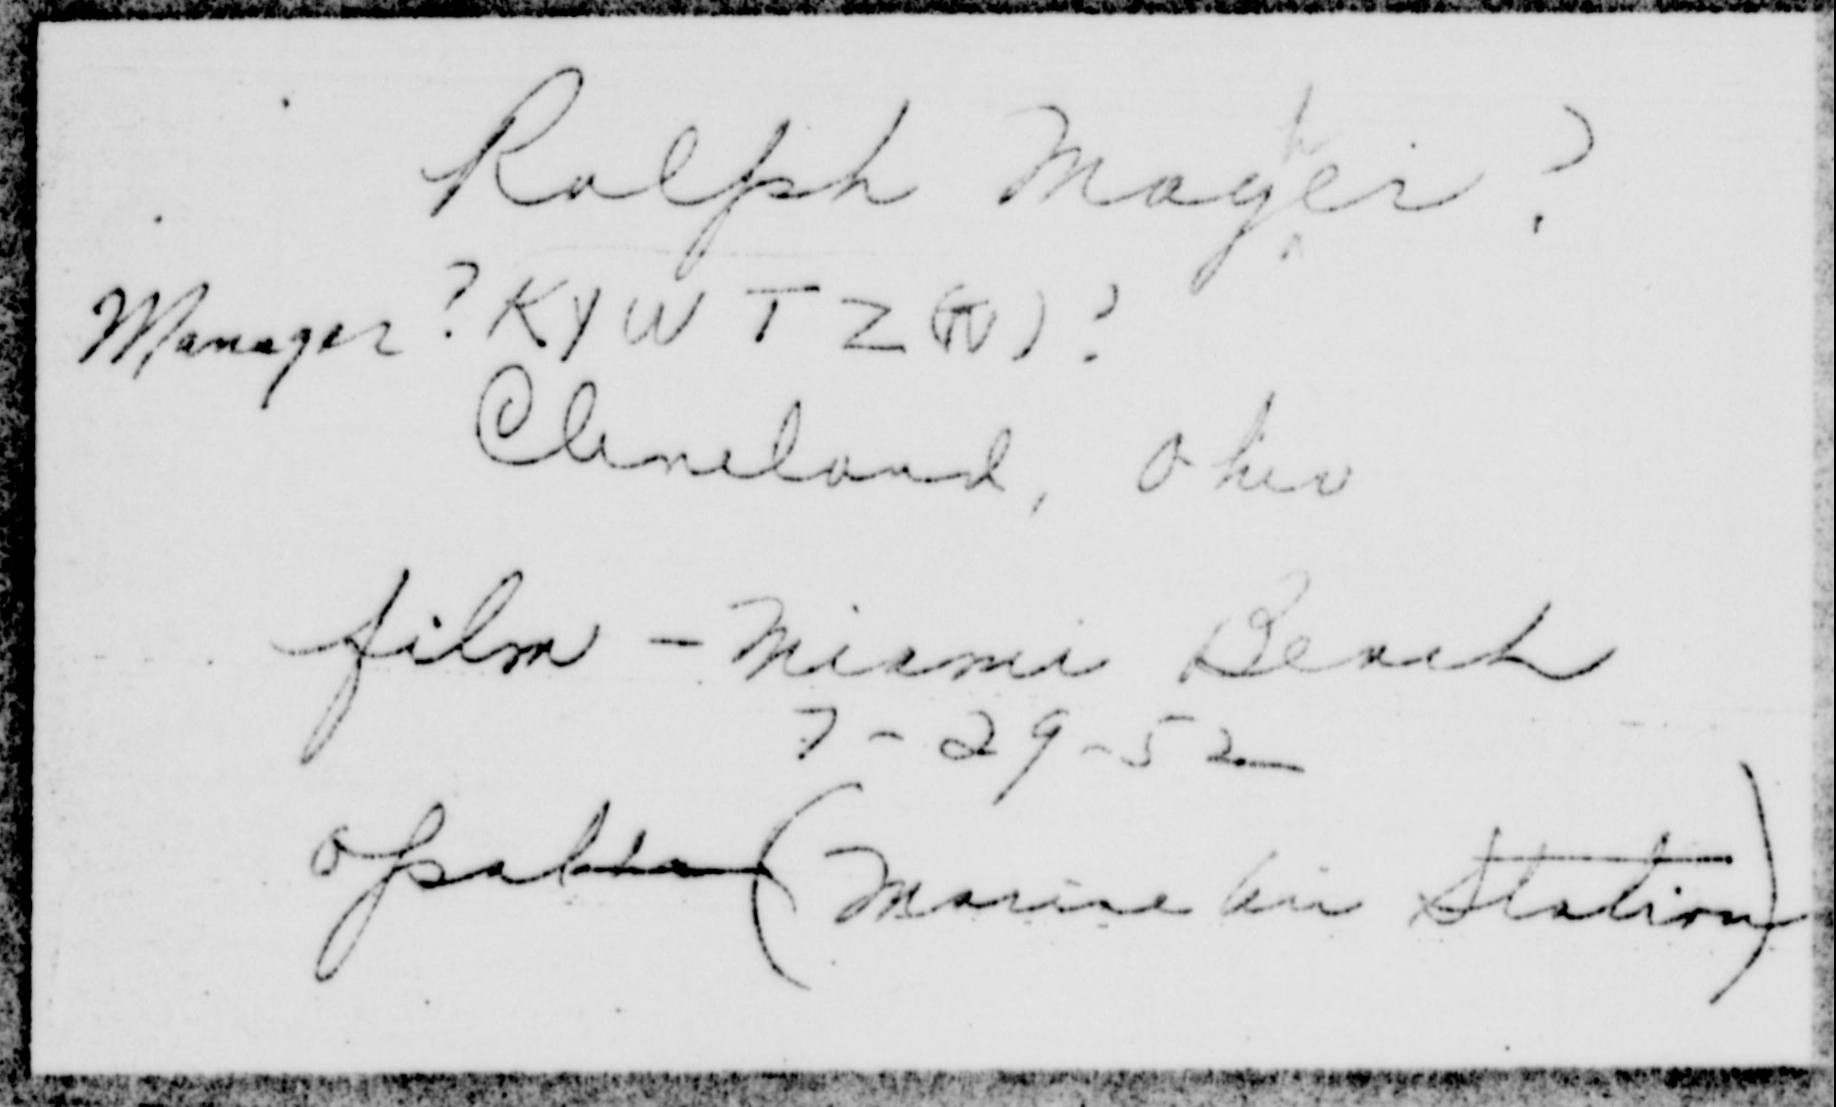 Ralph Mayher ?
Manager ? KYW T Z (TV) ?
Cleveland, Ohio
film - Miami Beach
7-29-52
(Marine Air Station)